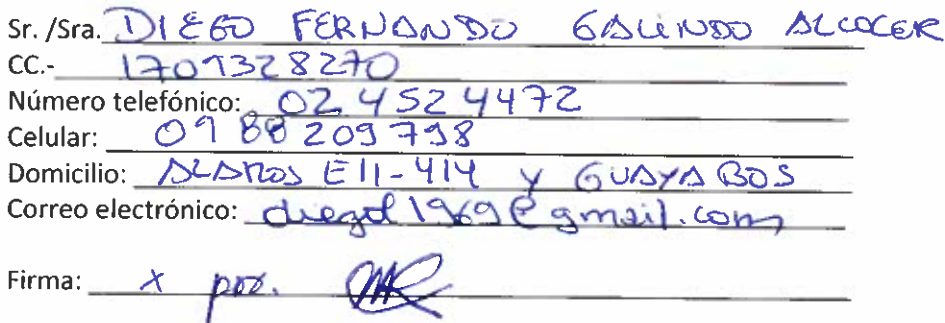 Sr. /Sra. DIEGO FERNANDO GALINDO ALCOCER
CC.- 1709328270
Número telefónico: 02 4524472
Celular: 0988209798
Domicilio: ALAMOS E11-414 y GUAYABOS
Correo electrónico: diegol1969@gmail.com
Firma: x por.